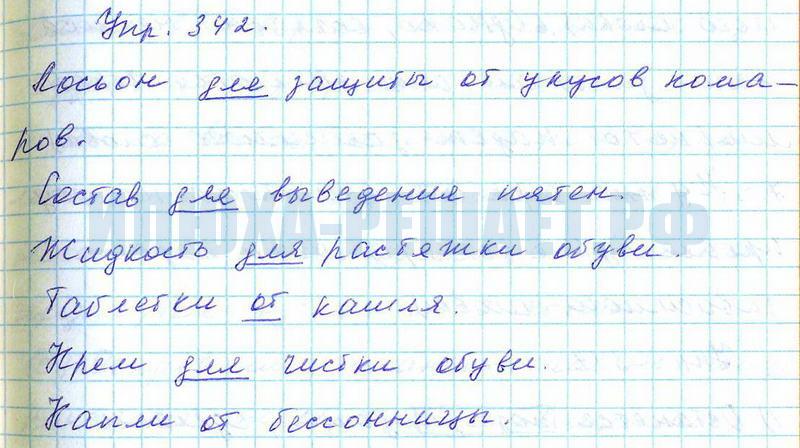 Упр. 342.
Лосьон для защиты от укусов кома-
ров.
Состав для выведения пятен.
ИЛЮХА-РЕШАЕТ.РФ
Жидкость для растяжки обуви.
Таблетки от кашля.
Крем для чистки обуви.
Капли от бессонницы.